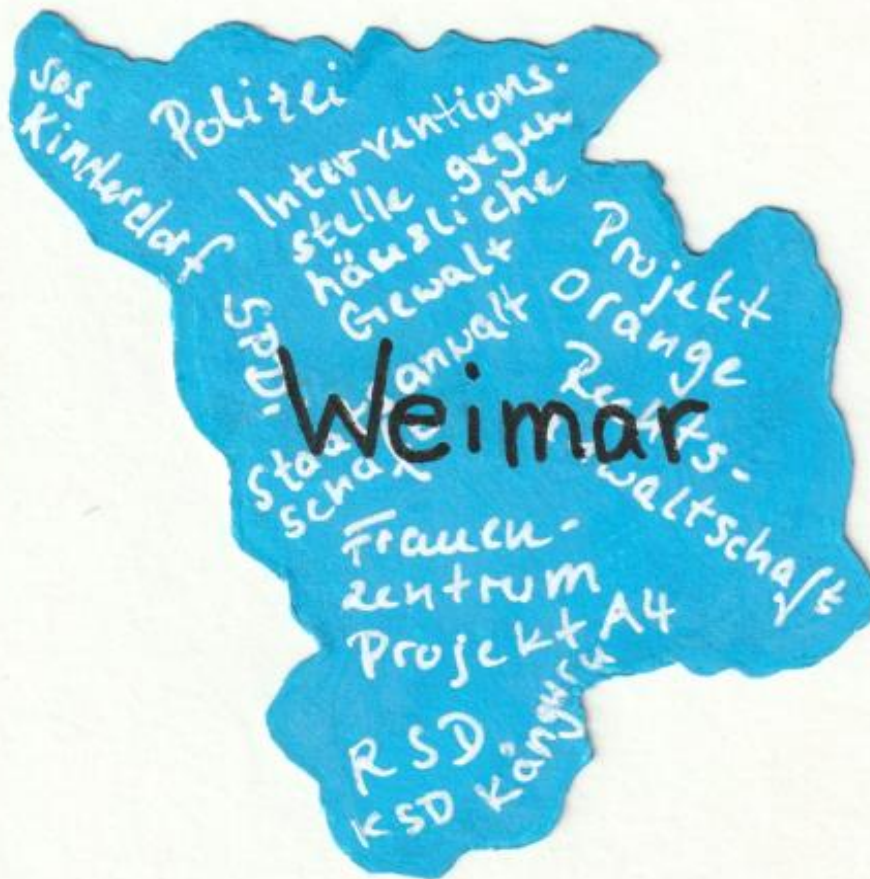 SOS
Kinderdorf
Polizei
Interventions-
stelle gegen
häusliche
Gewalt
SPDi
Staatsanwalt
schaft
Weimar
Projekt
Orange
Rechts-
anwaltschaft
Frauen-
zentrum
Projekt A4
RSD
KSD Känguru